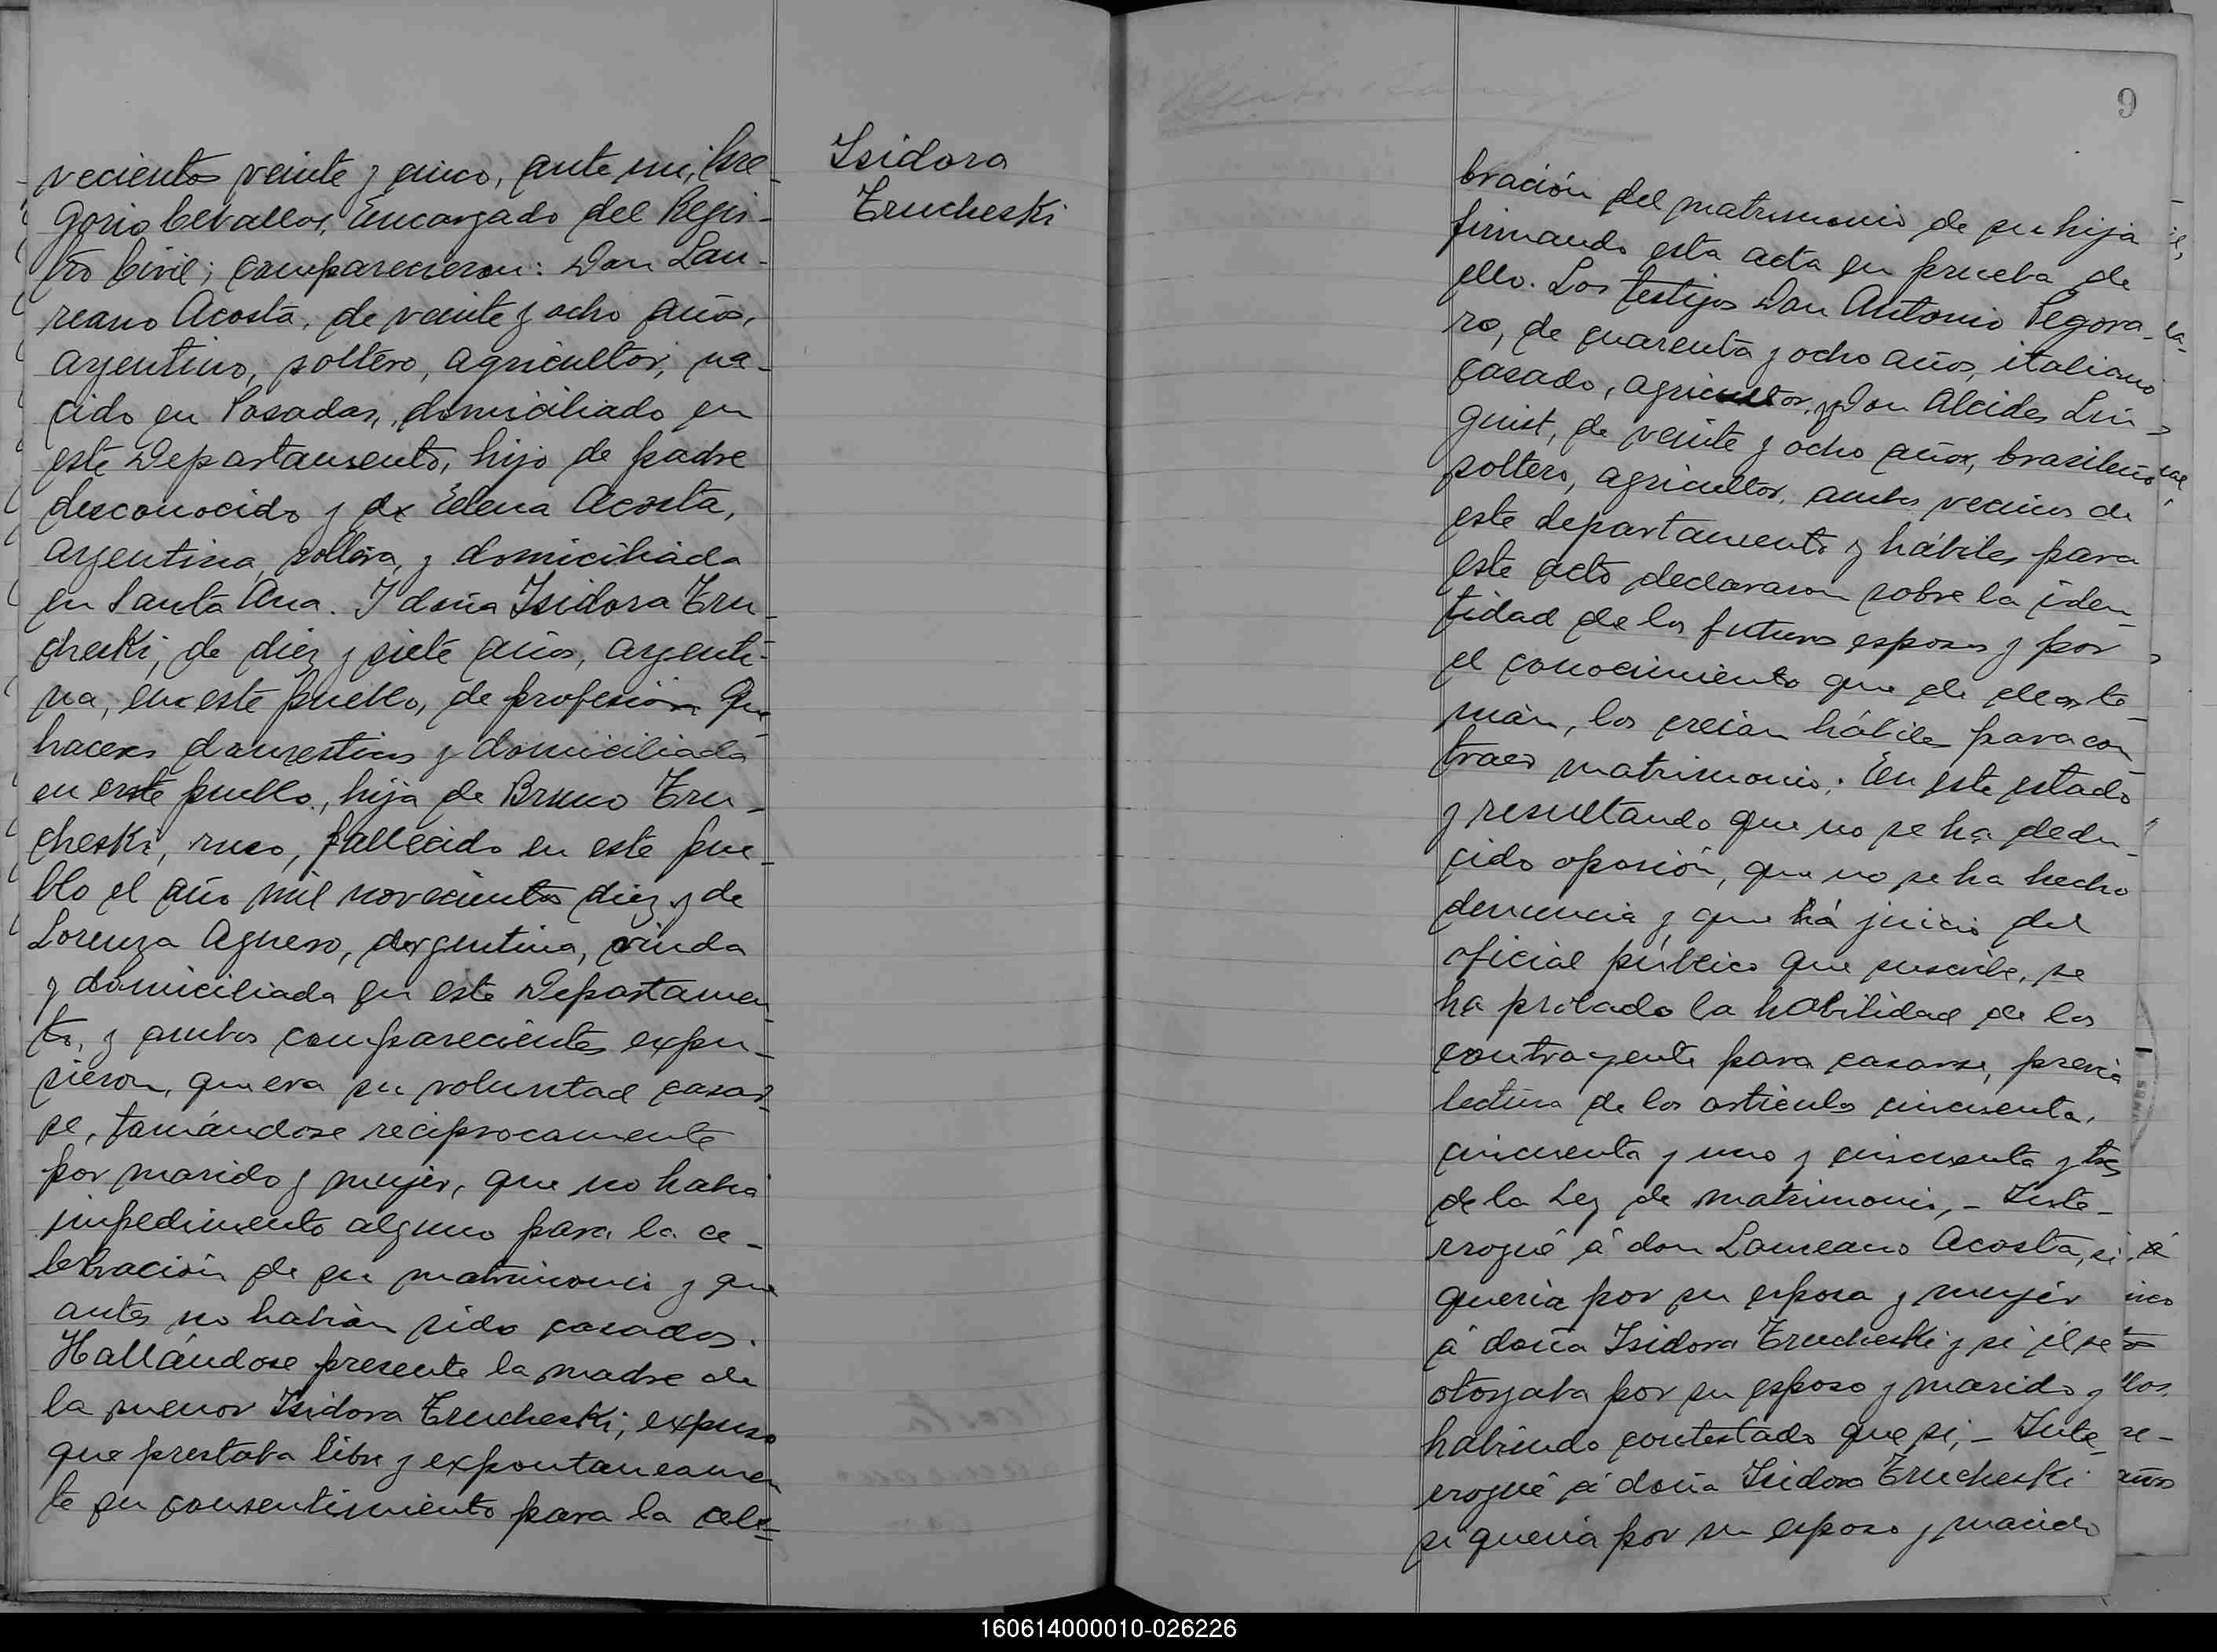 vecientos veinte y cinco, ante mi, Gre-
gorio Cevallos, Encargado del Regis-
tro Civil; comparecieron: Don Lau-
reano Acosta, de veinte y ocho años,
argentino, soltero, agricultor, na-
cido en Posadas, domiciliado en
este Departamento, hijo de padre
desconocido y de Elena Acosta,
argentina, soltera, y domiciliada
en Santa Ana. I doña Isidora Tru-
cheski, de diez y siete años, argenti-
na, en este pueblo, de profesión que
haceres domesticos y domiciliada
en este pueblo, hija de Bruno Tru-
cheski, ruso, fallecido en este pue-
blo el año mil novecientos diez y de
Lorenza Aguero, argentina, viuda
y domiciliada en este Departamen-
to, y ambos comparecientes expu-
sieron, que era su voluntad casar-
se, tomándose reciprocamente
por marido y mujer, que no habia
impedimento alguno para la ce-
lebración de su matrimonio y que
antes no habian sido casados.
Hallándose presente la madre de
la menor Isidora Trucheski, expuso
que prestaba libre y expontaneamen
te su consentimiento para la cele-
Isidora
Trucheski
9
bración del matrimonio de su hija
firmando esta acta en prueba de
ello. Los testigos Don Antonio Pegora-
ro, de cuarenta y ocho años, italiano
casado, agricultor, y Don Alcides Lin-
quist, de veinte y ocho años, brasileño
soltero, agricultor, ambos vecinos de
este departamento y hábiles para
este acto declararon sobre la iden-
tidad de los futuros esposos y por
el conocimiento que de ellos te-
nian, los creian hábiles para con
traer matrimonio; En este estado
y resultando que no se ha dedu-
cido oposión, que no se ha hecho
denuncia y que há juicio del
oficial público que suscribe, se
ha probado la habilidad de los
contrayente para casarse, previa
lectura de los artículos cincuenta,
cincuenta y uno y cincuenta y tres
de la Ley de matrimonio, - Inte-
rrogué á don Laureano Acosta, si
queria por su esposa y mujer
á doña Isidora Trucheski y si él se
otorgaba por su esposo y marido y
habiendo contestado que si, - Inte-
rrogué á doña Isidora Trucheski
si queria por su esposo y marido
160614000010-026226